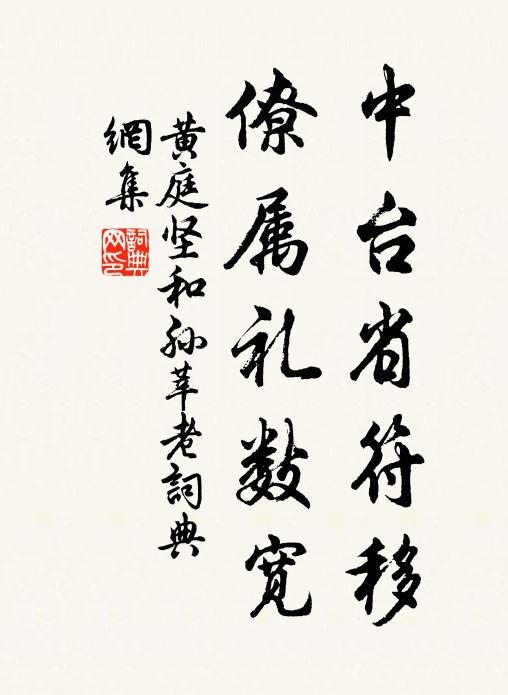 中台省符移
僚属礼数宽
黄庭坚和孙莘老詞典
網集
詞典
网印